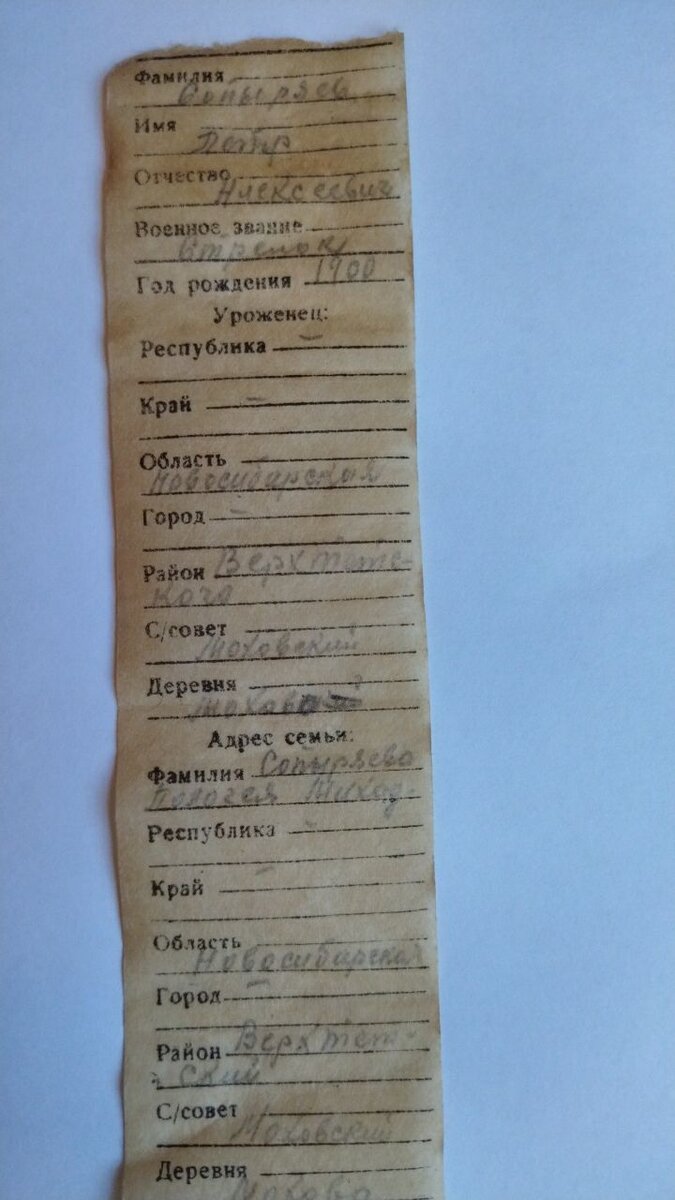 Фамилия
Сопыряев
Имя
Петр
Отчество
Алексеевич
Военное звание
Стрелок
Год рождения 1900
Уроженец:
Республика —
Край —
Область
Новосибирская
Город —
Район
С/совет
Моховский
Деревня
Адрес семьи:
Фамилия Сопыряева
Республика —
Край —
Область
Новосибирская
Город —
Район
ский
С/совет
Моховский
Деревня
Мохово